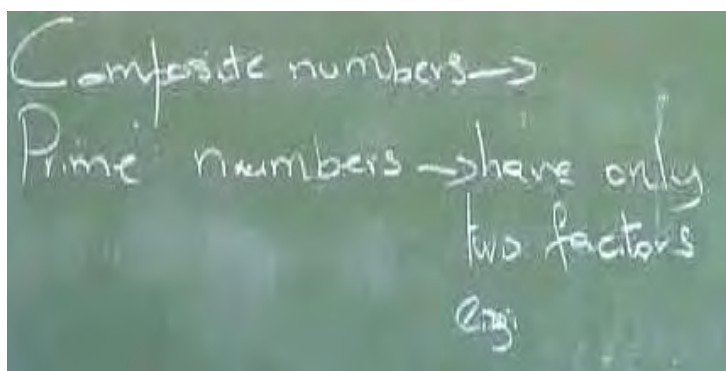 Composite numbers →
Prime numbers → have only
two factors
e.g.